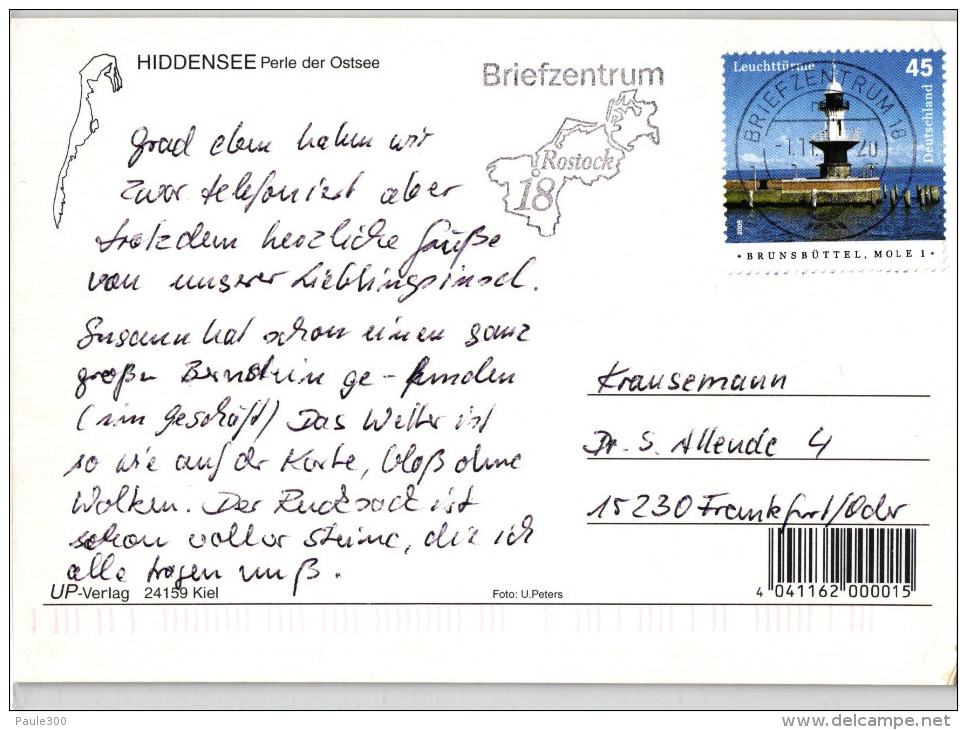 HIDDENSEE Perle der Ostsee
Briefzentrum
Rostock
18
Leuchttürme 45
Deutschland
BRIEFZENTRUM 18
-1.11. 20
2005
• BRUNSBÜTTEL, MOLE 1 •
Grad eben haben wir
zwar telefoniert aber
trotzdem herzliche Grüße
von unserer Lieblingsinsel.
Susann hat schon einen ganz
großen Bernstein ge-funden
(im Geschäft) Das Wetter ist
so wie auf der Karte, bloß ohne
Wolken. Der Rucksack ist
schon voller Steine, die ich
alle tragen muß.
Krausemann
Dr. S. Allende 4
15230 Frankfurt/Oder
UP-Verlag 24159 Kiel
Foto: U.Peters
4 041162 000015
Paule300
www.delcampe.net